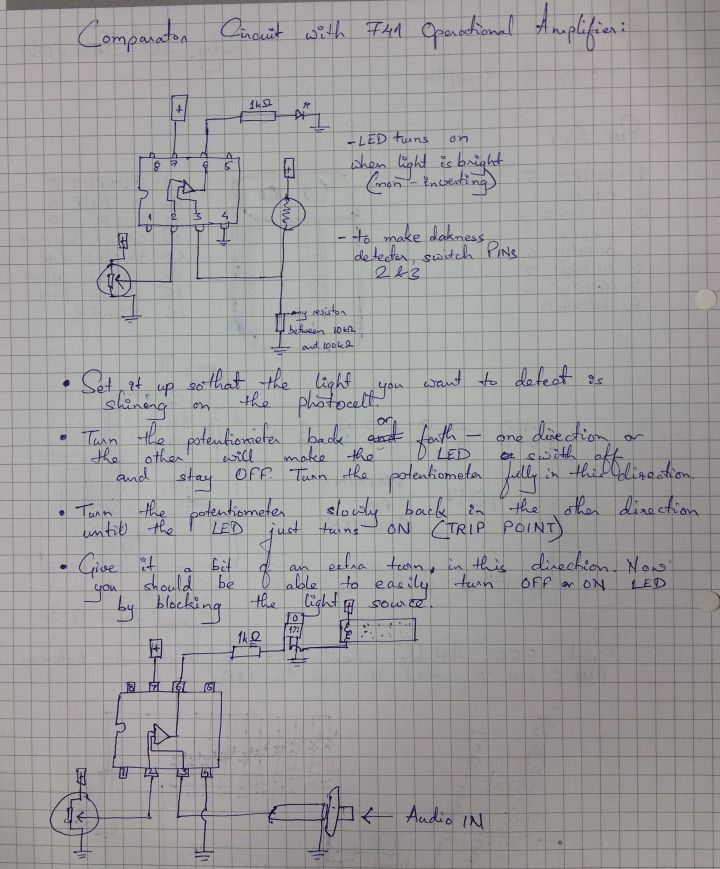 Comparator Circuit with 741 Operational Amplifier:
+
1kΩ
8 7 6 5
1 2 3 4
+
+
- LED turns on
when light is bright
(non-inverting)
- to make dakness
detector, switch PINS
2 & 3
any resistor
between 10kΩ
and 100kΩ
• Set it up so that the light you want to detect is
shining on the photocell.
• Turn the potentiometer back or forth - one direction or
the other will make the LED swith off
and stay OFF. Turn the potentiometer fully in this direction.
• Turn the potentiometer slowly back in the other direction
until the LED just turns ON (TRIP POINT)
• Give it a bit of an extra turn, in this direction. Now
you should be able to easily turn OFF or ON LED
by blocking the light source.
+
1kΩ
+
8 7 6 5
1 2 3 4
+
Audio IN